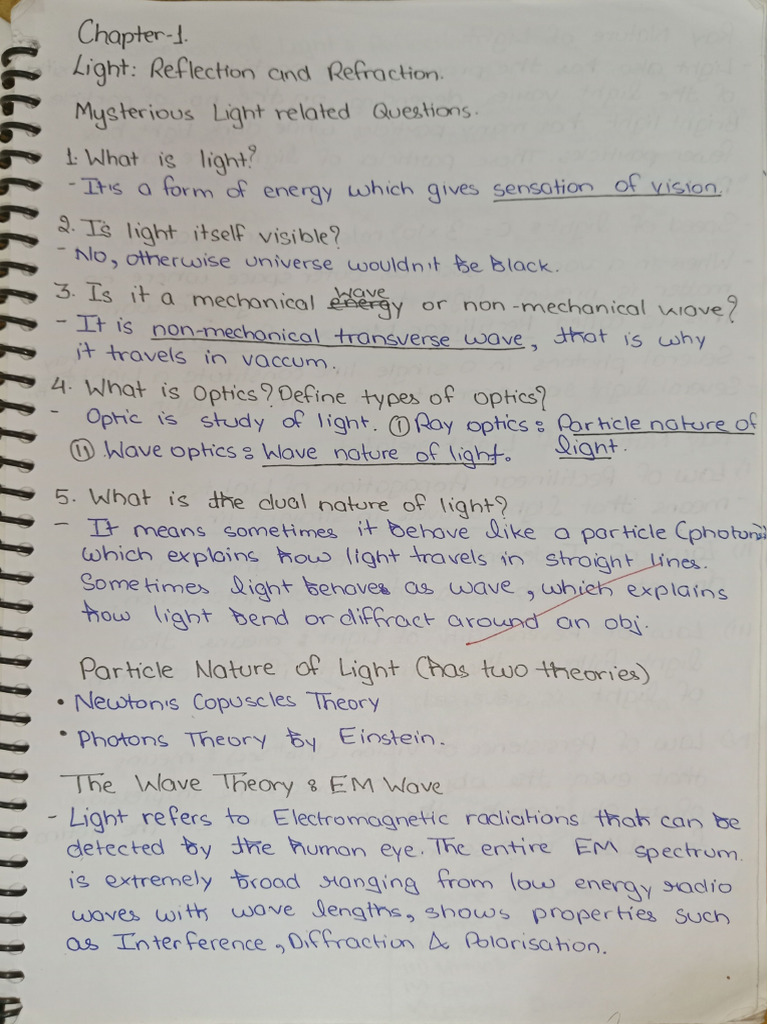 Chapter-1.
Light: Reflection and Refraction.
Mysterious Light related Questions.
1. What is light?
- It is a form of energy which gives sensation of vision.
2. Is light itself visible?
- No, otherwise universe wouldn't be black.
3. Is it a mechanical energy wave or non-mechanical wave?
- It is non-mechanical transverse wave, that is why
it travels in vaccum.
4. What is Optics? Define types of optics?
- Optic is study of light. (I) Ray optics: Particle nature of
(II) Wave optics: Wave nature of light. light.
5. What is the dual nature of light?
- It means sometimes it behave like a particle (photon)
which explains how light travels in straight lines.
Sometimes light behaves as wave, which explains
how light bend or diffract around an obj.
Particle Nature of Light (has two theories)
• Newton's Copuscles Theory
• Photons Theory by Einstein.
The Wave Theory & EM Wave
- Light refers to Electromagnetic radiations that can be
detected by the human eye. The entire EM spectrum
is extremely broad ranging from low energy radio
waves with wave lengths, shows properties such
as Interference, Diffraction & Polarisation.